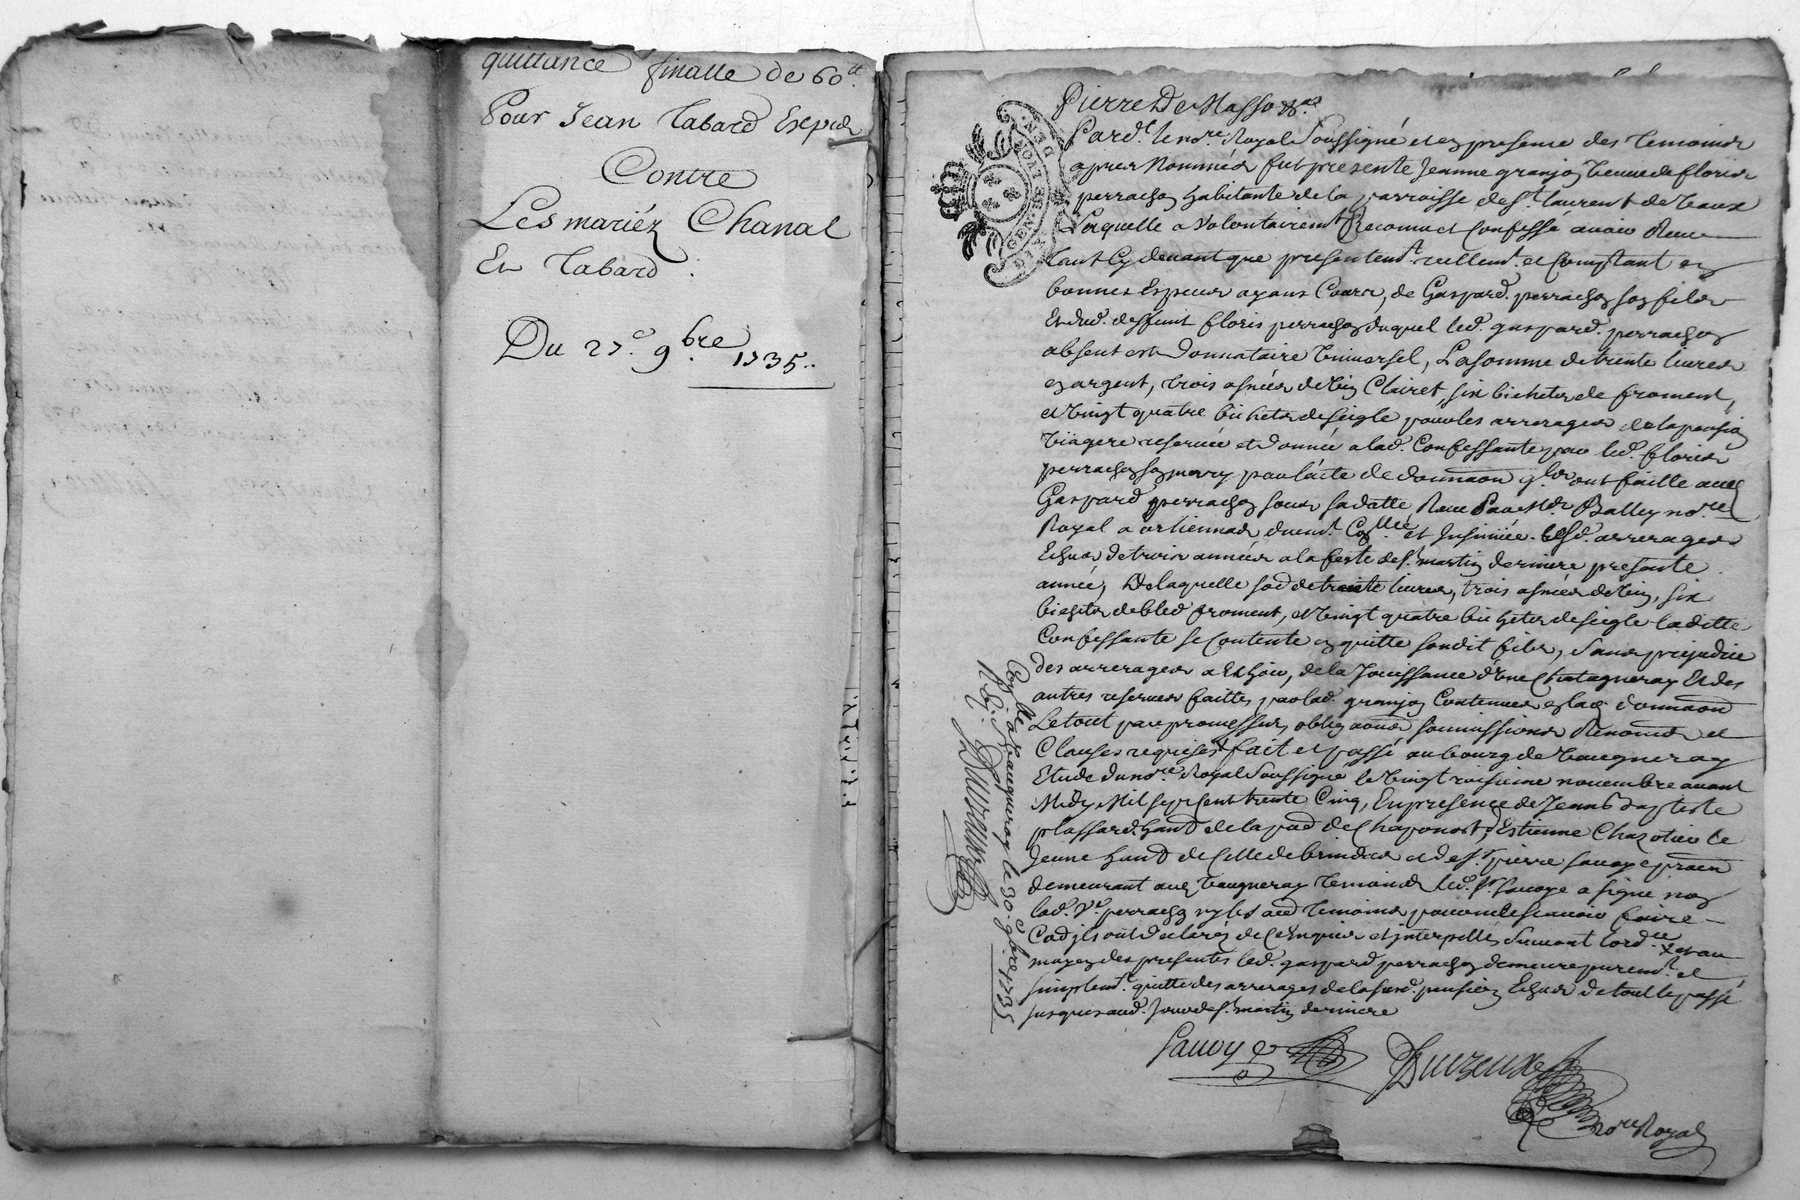 quittance finalle de 60ᵗᵗ
Pour Jean Tabard Exped
Contre
Les mariéz Chanal
Et Tabard
Du 27ᵉ 9ᵇʳᵉ 1735..
Pierre De Masso
Pardᵗ le noʳᵉ Royal Soussigné et en presence des temoins
apres Nommés fut presente Jeanne granjon veuve de floris
perrachon habitante de la parroisse de Sᵗ laurent de vaux
Laquelle a volontairemᵗ Reconnu et Confessé avoir Reçu
tant Cy devant que presentemᵗ reellemᵗ et Comptant en
bonnes Especes ayant Cours, de Gaspard perrachon son fils
Et dud. deffunt floris perrachon duquel led. gaspard perrachon
absent est Donnataire Universel, La somme de trente livres
en argent, trois asnées de vin Clairet, six bichets de froment,
et vingt quatre bichets de seigle pour les arrerages de la pension
viagere reservée et donnée a lad. Confessante par led. floris
perrachon son mary par l'acte de donnaon qlz ont faitte aud
Gaspard perrachon sous sa datte Reçu Par Mᵉ Balley noʳᵉ
Royal a duemᵗ Conllée et Insinuée lesd. arrerages
Echus de trois années a la feste de Sᵗ martin derniere presente
année, De laquelle sod de trente livres, trois asnées de vin, six
bichets de bled froment, et vingt quatre bichets de seigle laditte
Confessante se Contente en quitte sondit fils, Sans prejudice
des arrerages a Echoir, de la Jouissance d'une Chatagneray Et des
autres reserves faittes par lad. granjon Contenues en lad donnaon
Le tout par promesses, oblig aons soumissions Renonces et
Clauses requises fait et passé au bourg de vaugneray
Etude du noʳᵉ Royal Soussigné le vingt troisieme novembre avant
Midy Mil sept cent trente Cinq, En presence de Jean Baptiste
plassard habᵗ de la pad de Chaponost, d'Estienne Chazotier le
Jeune habᵗ de Celle de brindas et de Sʳ pierre savoye praen
demeurant aud vaugneray temoins led. Sʳ Savoye a signe non
lad. Vᵉ perrachon ny les aud temoins pour ne le scavoir faire
Cod ils ont declaréz de Ce Enquis et interpellés Suivant lordᶜᵉ x et au
moyen des presentes led. gaspard perrachon demeure puremᵗ et
simplemᵗ quitte des arrerages de la susd. pension Echus de tout le passé
jusques aud. Jour de Sᵗ martin derniere
Savoye
noʳᵉ Royal
GEN. DE LYON
DEN.
Conllé a Vaugneray le 30ᵉ 9bre 1735